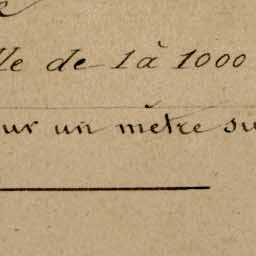 lle de 1 à 1000
ur un mètre su